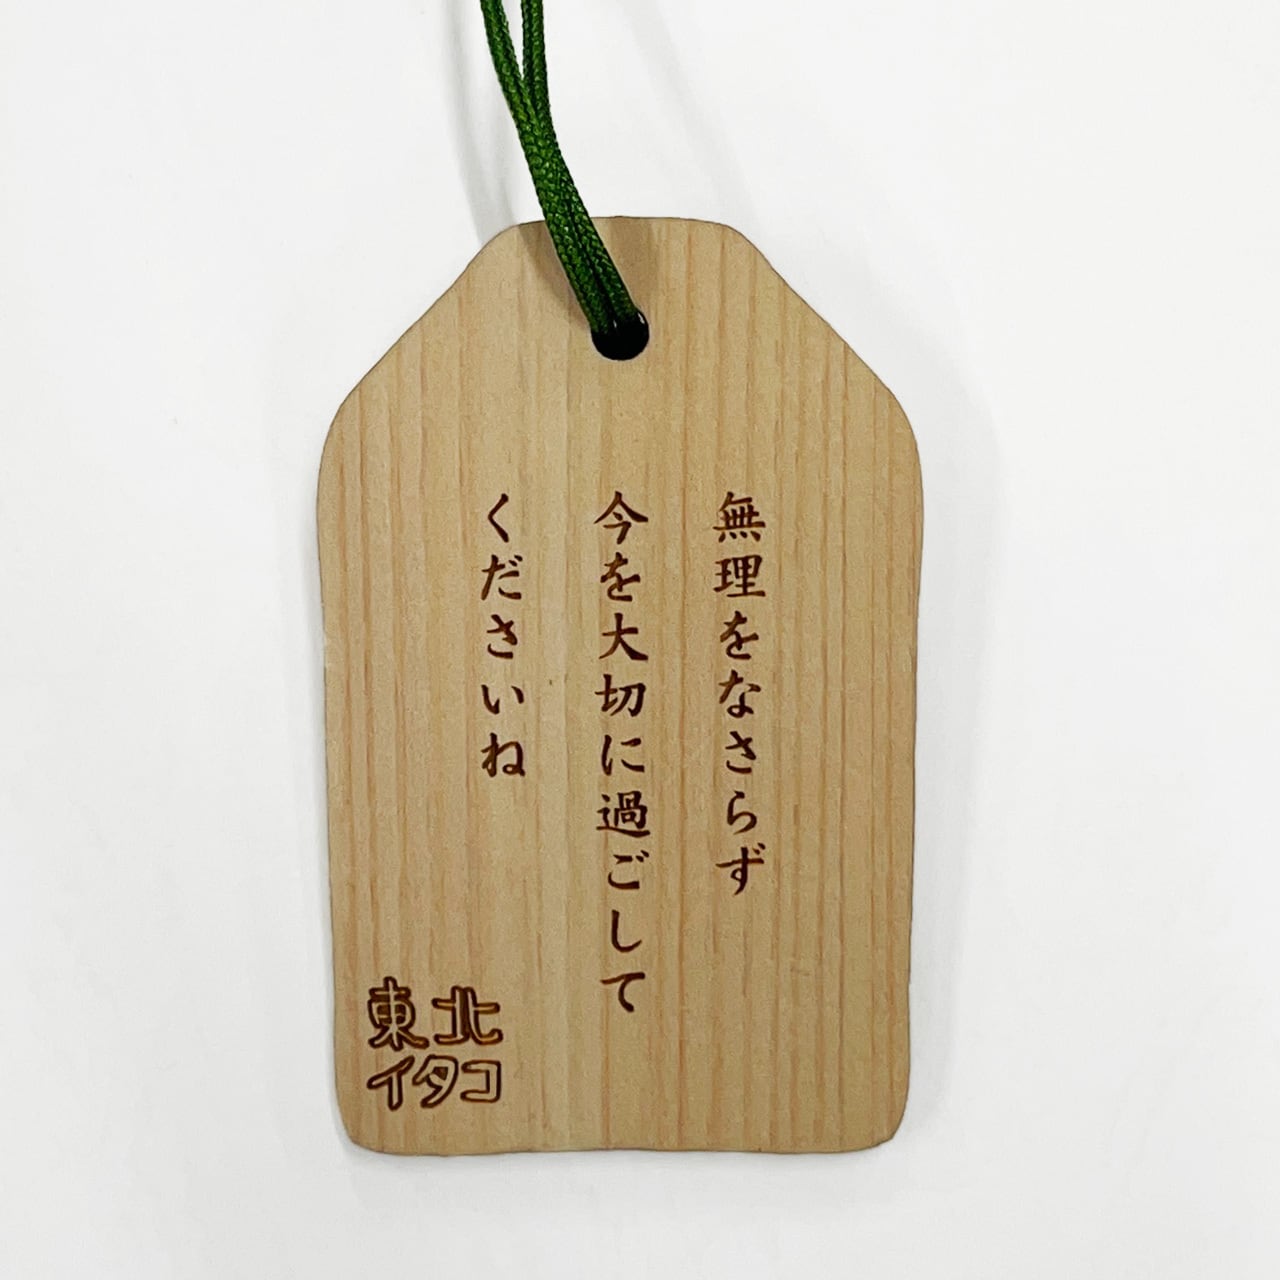 無理をなさらず
今を大切に過ごして
くださいね
東北
イタコ